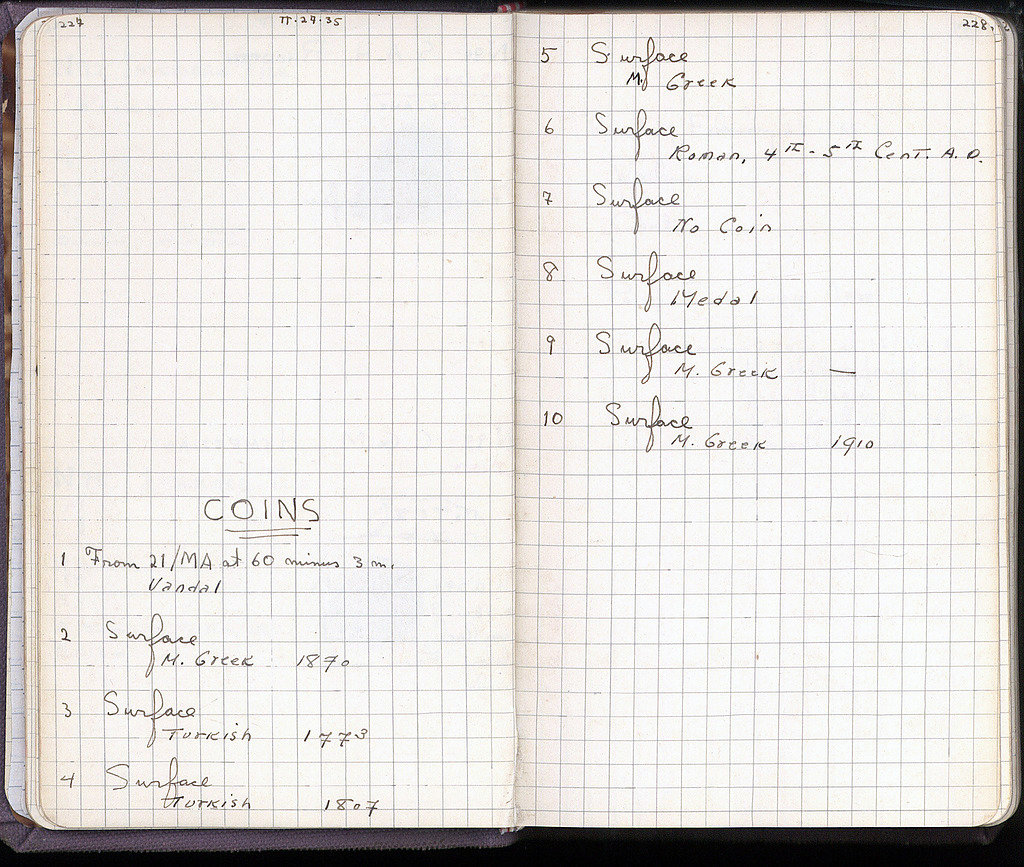 227
II·27·35
COINS
1 From 21/MA at 60 minus 3 m.
Vandal
2 Surface
M. Greek 1870
3 Surface
Turkish 1773
4 Surface
Turkish 1807
228
5 Surface
M. Greek
6 Surface
Roman, 4th - 5th Cent. A.D.
7 Surface
No Coin
8 Surface
Medal
9 Surface
M. Greek —
10 Surface
M. Greek 1910